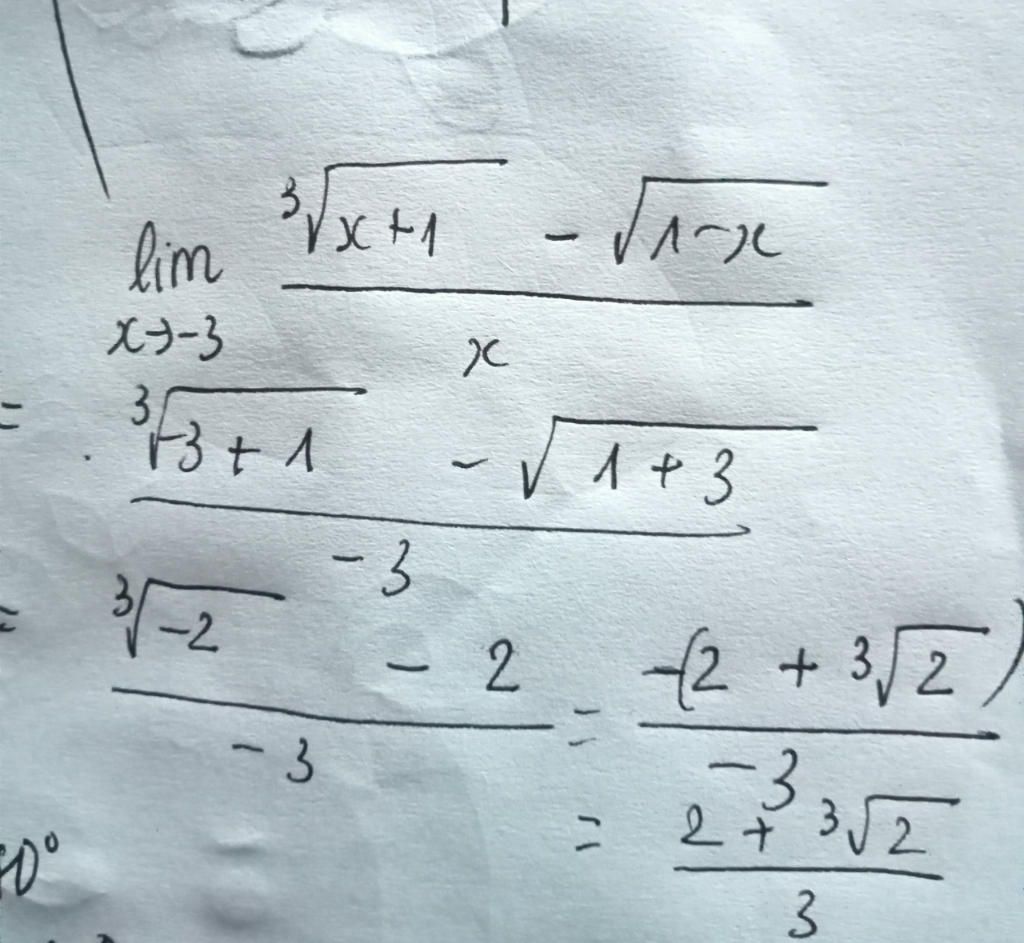 lim x→-3 (³√(x+1) - √(1-x)) / x
= (³√(-3+1) - √(1+3)) / -3
= (³√(-2) - 2) / -3 = -(2 + ³√2) / -3
= (2 + ³√2) / 3
0°